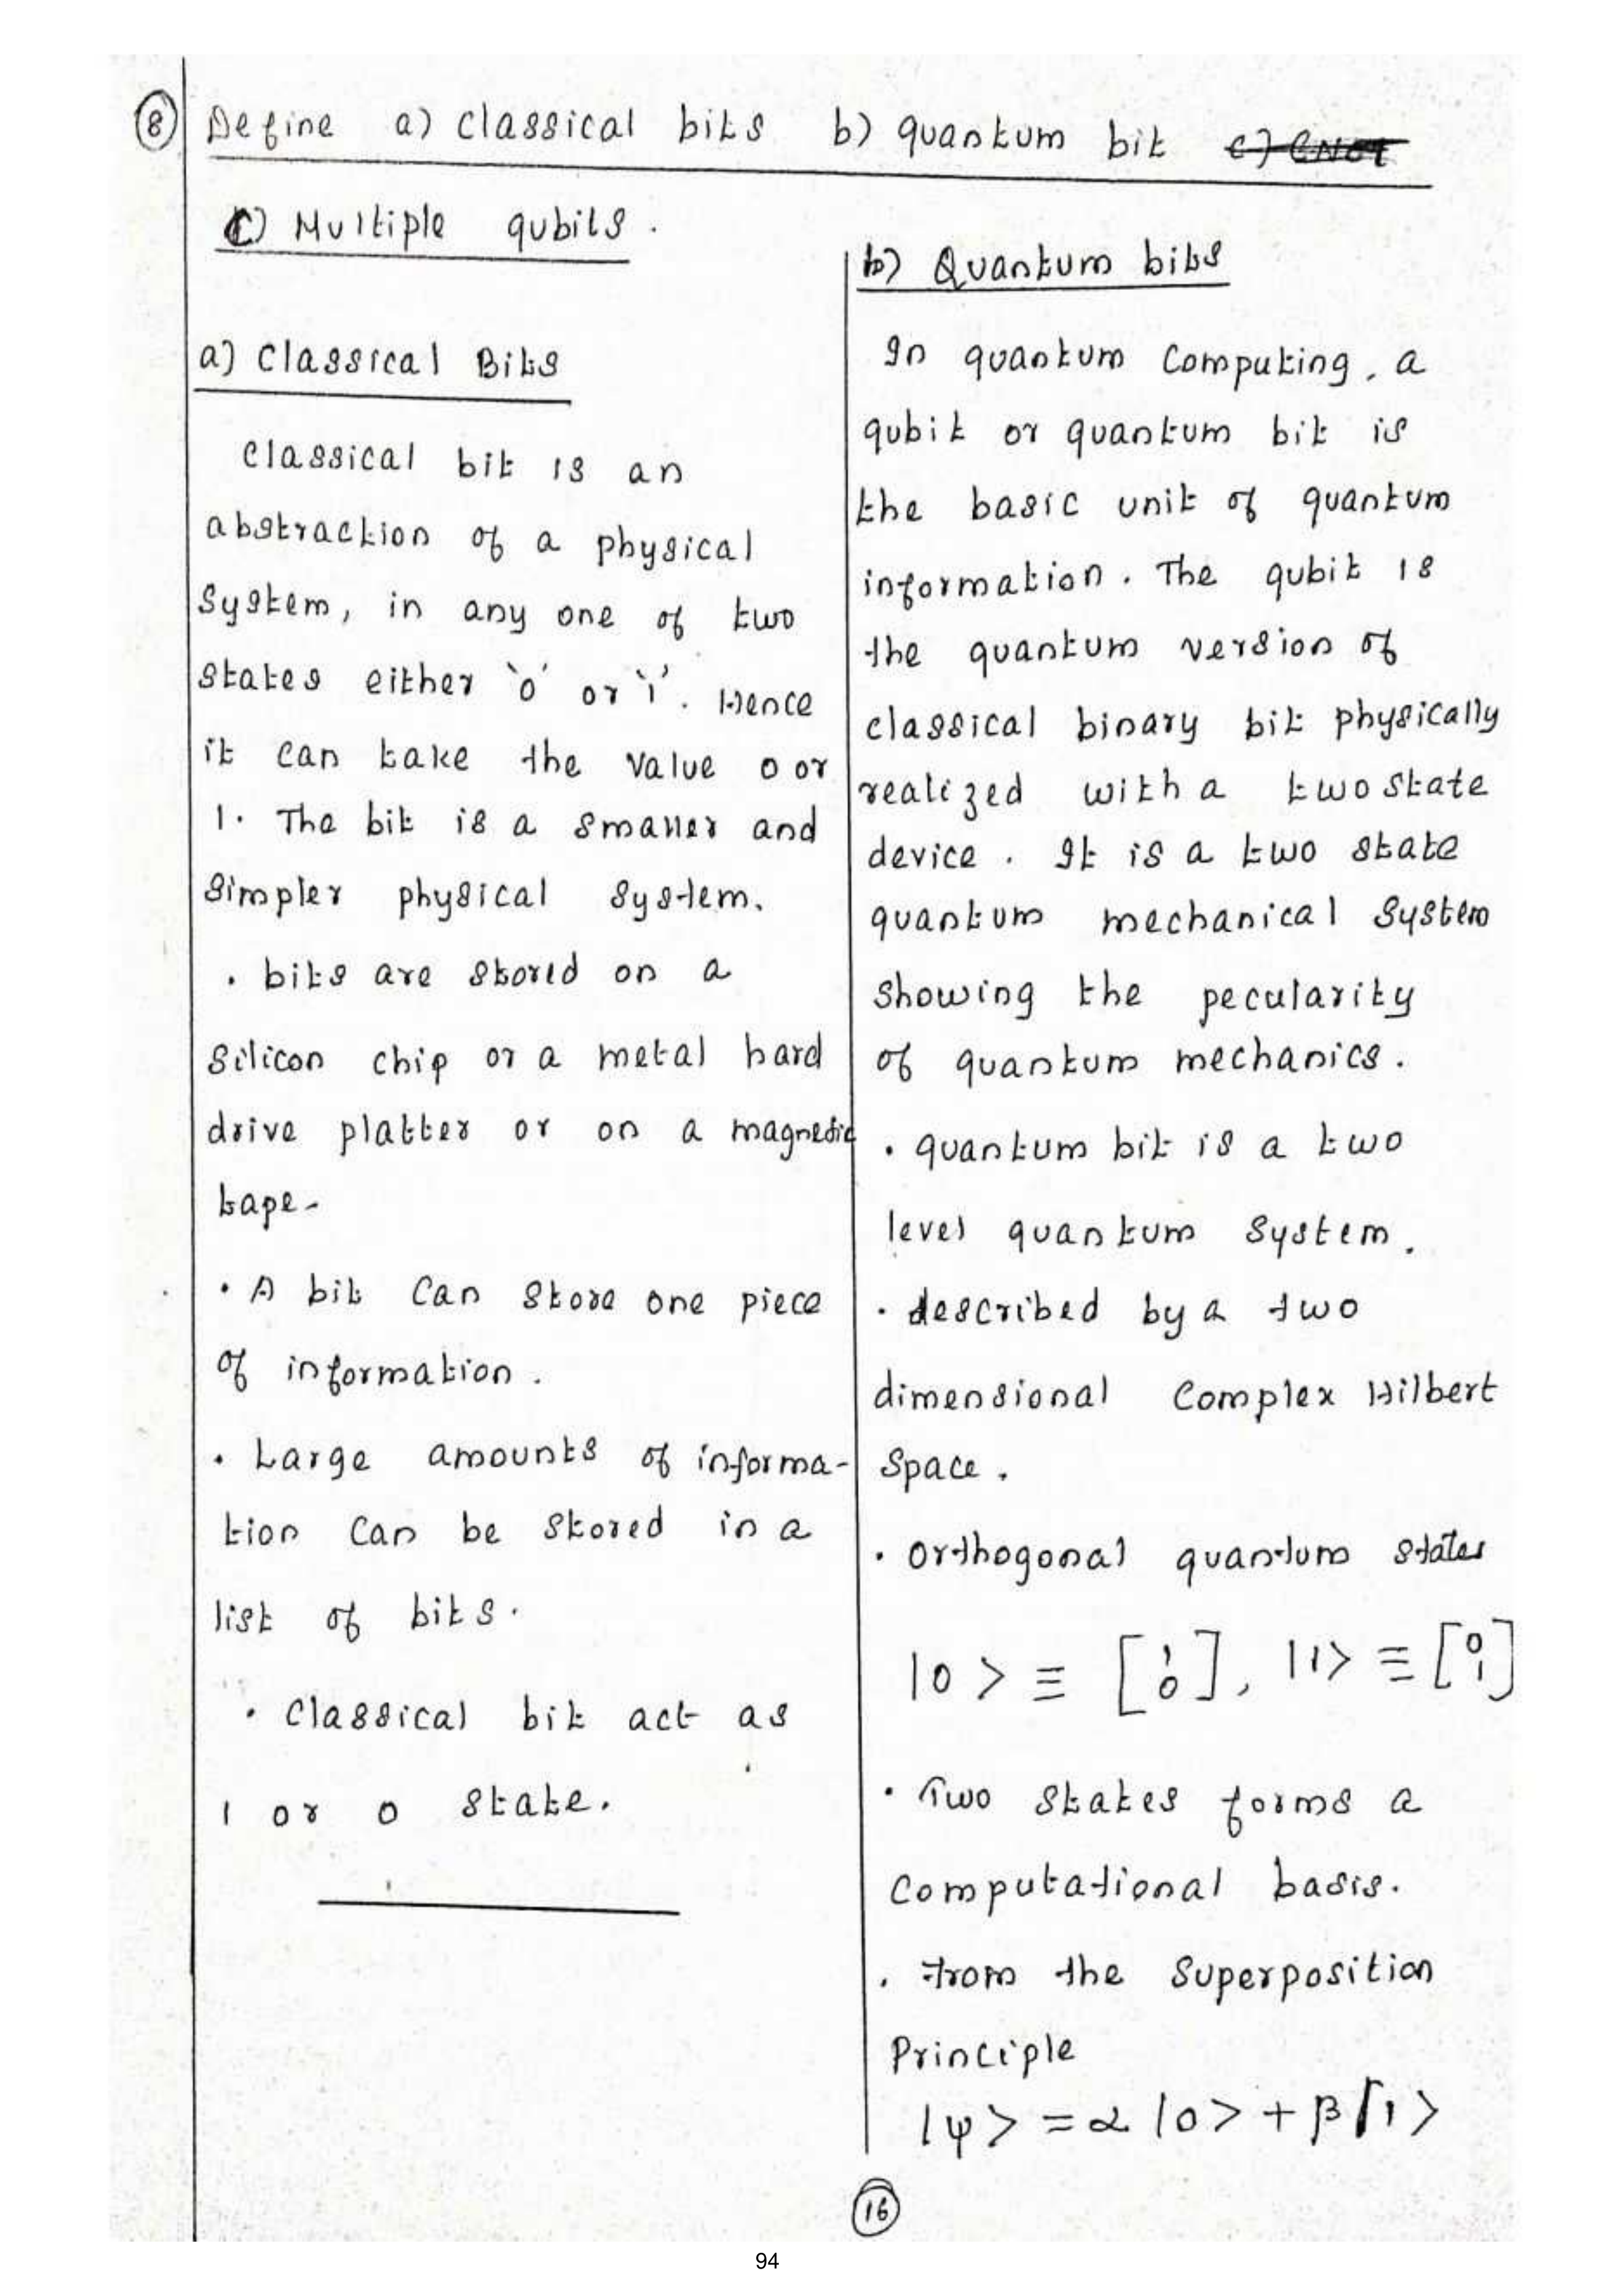 8 Define a) classical bits b) quantum bit c) CNOT
C) Multiple qubits.
a) Classical Bits
classical bit is an
abstraction of a physical
System, in any one of two
states either '0' or '1'. Hence
it can take the value 0 or
1. The bit is a smaller and
simpler physical system.
• bits are stored on a
silicon chip or a metal hard
drive platter or on a magnetic
tape-
• A bit can store one piece
of information.
• Large amounts of informa-
tion can be stored in a
list of bits.
• Classical bit act as
1 or 0 state.
b) Quantum bits
In quantum computing, a
qubit or quantum bit is
the basic unit of quantum
information. The qubit is
the quantum version of
classical binary bit physically
realized with a two state
device. It is a two state
quantum mechanical system
showing the pecularity
of quantum mechanics.
• quantum bit is a two
level quantum system.
• described by a two
dimensional complex Hilbert
space.
• orthogonal quantum states
|0> ≡ [1 0], |1> ≡ [0 1]
• Two states forms a
computational basis.
• From the superposition
Principle
|ψ> = α |0> + β |1>
16
94